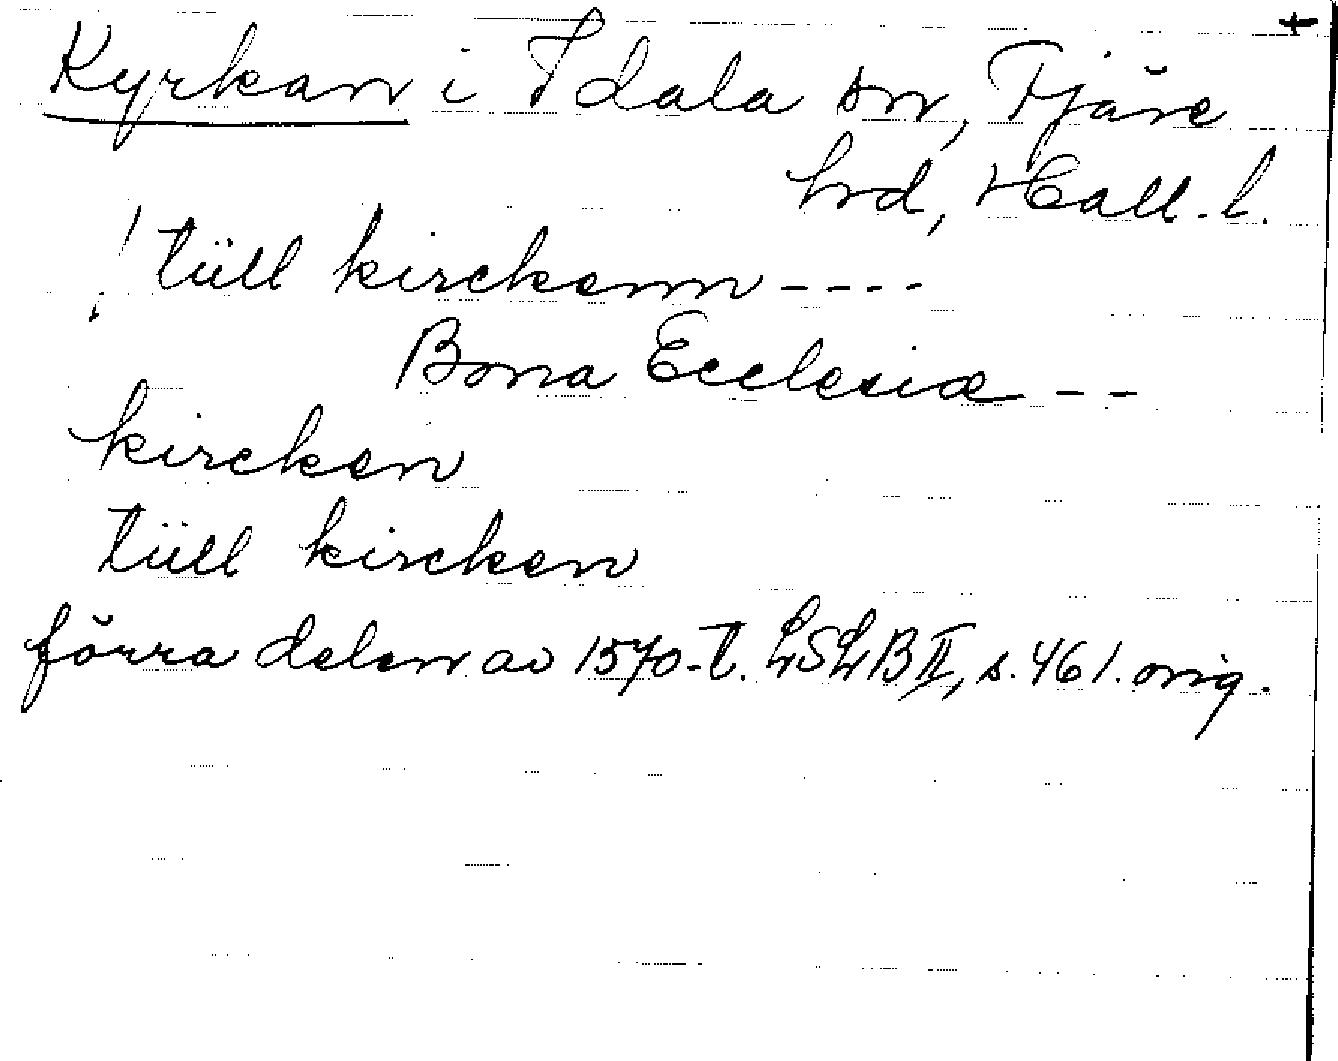 +
Kyrkan i Idala sn, Fjäre
hrd, Hall. l.
! tüll kirckenn ----
Bona Ecclesiæ --
kircken
tüll kircken
förra delen av 1570-t. LSLB II, s. 461. orig.